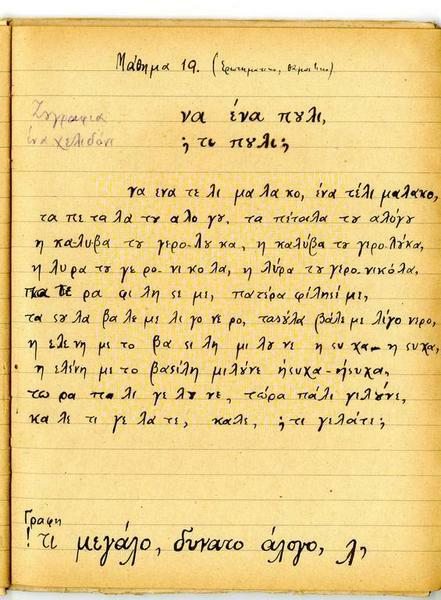 Μάθημα 19. (Ερωτηματικο, θαμαςτικο)
Ζυγραφια
ένα χελιδόνι
να ένα πυλι,
; τι πυλι;
να ενα τε λι μα λα κο, ένα τέλι μαλακο,
τα πε τα λα τυ αλο γυ, τα πέταλα τυ αλόγυ
η κα λυβα τυ γερο-λυ κα, η καλύβα τυ γερο-λύκα,
η λυ ρα τυ γε ρο-νι κο λα, η λύρα τυ γερο-νικόλα,
πα τε ρα φι λη ςε με, πατέρα φίληςέ με,
τα ςυ λα βα λε με λι γο νε ρο, ταςύλα βάλε με λίγο νερο,
η ελε νη με το βα ςι λη μι λυ νε η ςυ χα-η ςυχα,
η ελένη με το βαςίλη μιλύνε ήςυχα-ήςυχα,
τω ρα πα λι γε λυ νε, τώρα πάλι γελύνε,
κα λε τι γε λα τε, καλε, ; τι γελάτε;
Γραφη
! τι μεγάλο, δυνατο άλογο, λ,